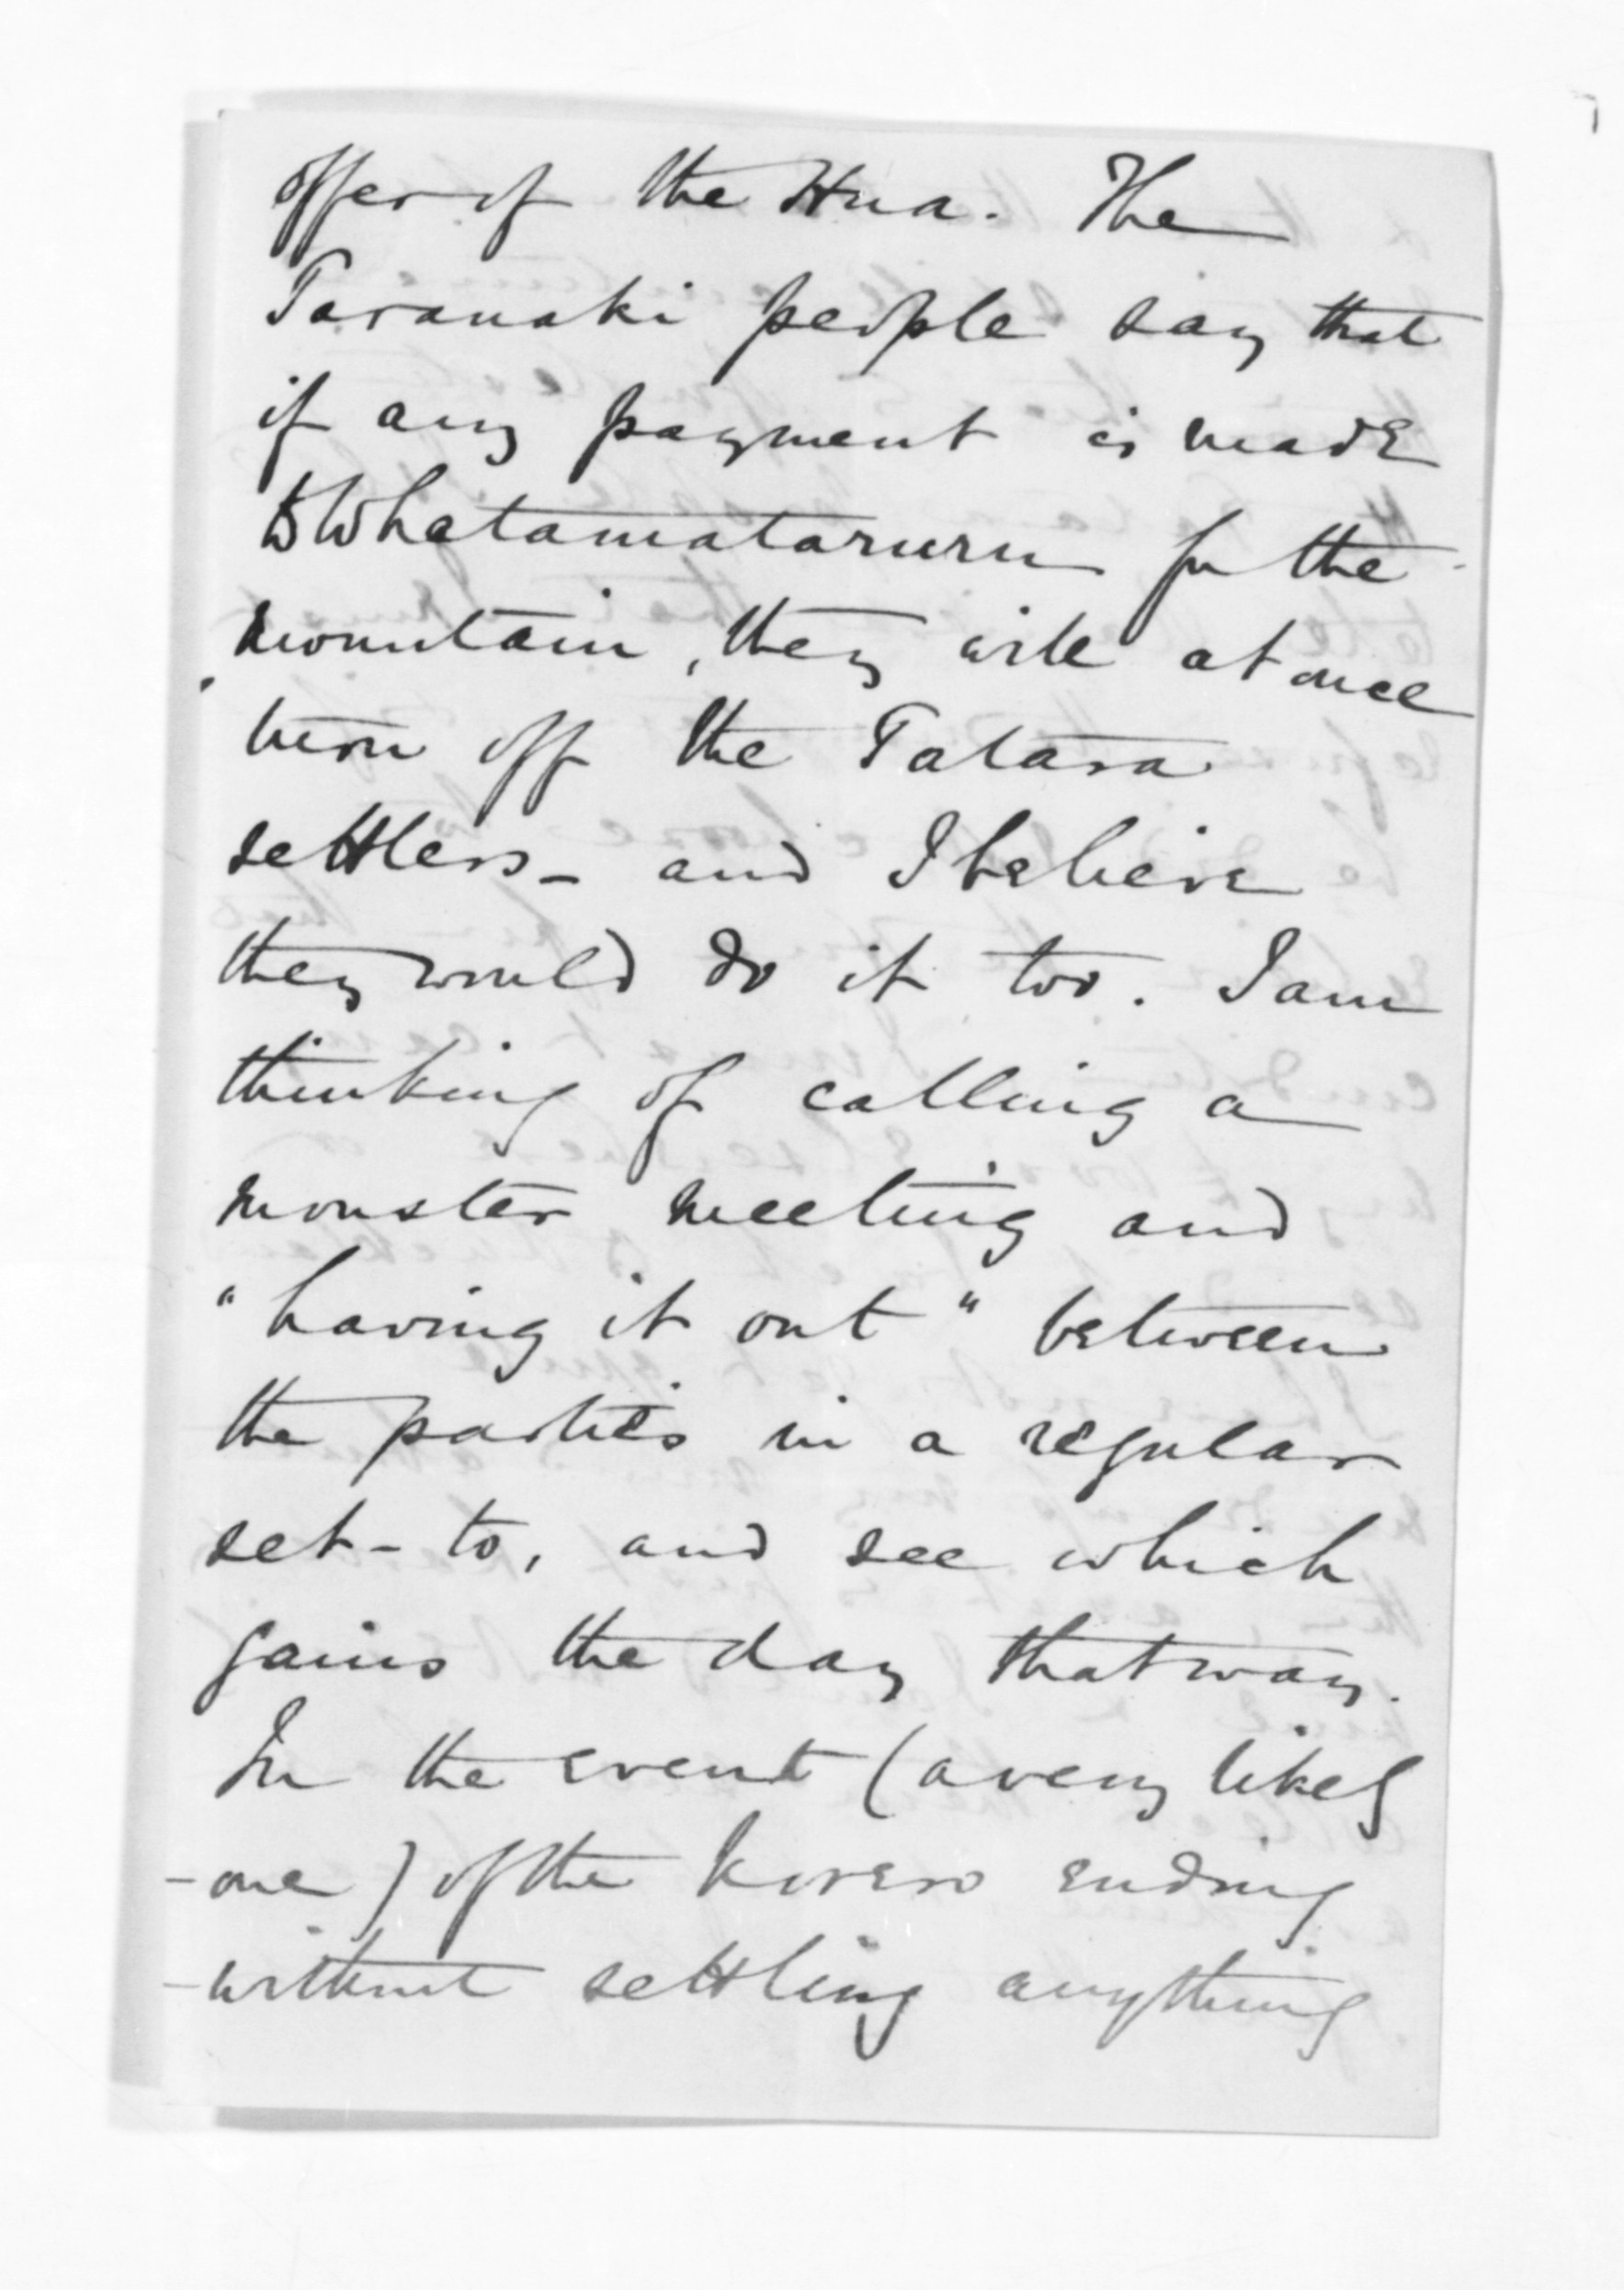 offer of the Hua. The
Taranaki people say that
if any payment is made
to Whatamatararuru for the
mountain, they will at once
turn off the Tatara
settlers - and I believe
they would do it too. I am
thinking of calling a
monster meeting and
"having it out" between
the parties in a regular
set-to, and see which
gains the day that way.
In the event (a very likely
one) of the korero ending
without settling anything